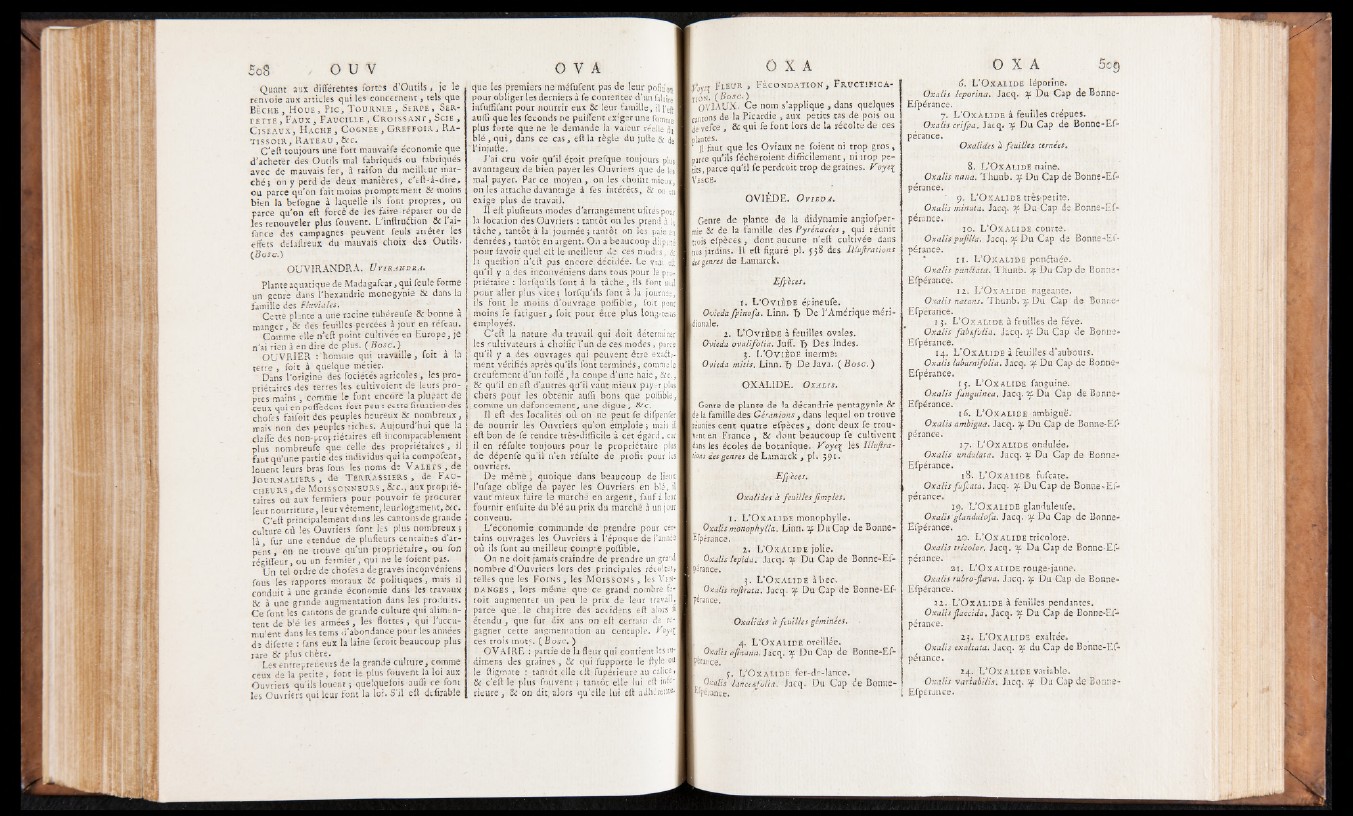 508 OUV
Quant aux différentes sortes d'Outils, je le
renvoie aux articles qui les concernent, tels que
BÊCHE, HOUE, PIC, TOURNÉE, SERPE, SER-
PETTE, FAUX, FAUCILLE, CROISSANT, SCIE,
CISEAUX, HACHE, COGNÉE, GREFFOIR, RA-
TISSOIR, RATEAU, &c.
C'eſt toujours une fort mauvaiſe économie que
d'acheter des Outils mal fabriqués ou fabriqués
avec de mauvais fer, à raiſon du meilleur mar-
ché; on y perd de deux manières, c'eſt-à-dire,
ou parce qu'on fait moins promptement & moins
bien la beſogne à laquelle ils ſont propres, ou
parce qu'on eſt forcé de les faire réparer ou de
les renouveler plus ſouvent. L'inſtruction & l'ai-
ſance des campagnes peuvent ſeuls arrêter les
effets déſaſtreux du mauvais choix des Outils.
(Bosc.)
OUVIRANDRA. UVIRANDRA.
Plante aquatique de Madagaſcar, qui ſeule forme
un genre dans l'hexandrie monogynie & dans la
famille des Fluviales.
Cette plante a une racine tubéreuſe & bonne à
manger, & des feuilles percées à jour en réſeau.
Comme elle n'eſt point cultivée en Europe, je
n'ai rien à en dire de plus. (Bosc.)
OUVRIER : homme qui travaille, ſoit à la
terre, ſoit à quelque métier.
Dans l'origine des ſociétés agricoles, les pro-
priétaires des terres les cultivoient de leurs pro-
pres mains, comme le font encore la plupart de
ceux qui en poſſèdent fort peu : cette ſituation des
choſes faiſoit des peuples heureux & nombreux,
mais non des peuples riches. Aujourd'hui que la
claſſe des non-propriétaires eſt incomparablement
plus nombreuſe que celle des propriétaires, il
faut qu'une partie des individus qui la compoſent,
louent leurs bras ſous les noms de VALETS, de
JOURNALIERS, de TERRASSIERS, de FAU-
CHEURS, de MOISSONNEURS, &c., aux proprié-
taires ou aux fermiers pour pouvoir ſe procurer
leur nourriture, leur vêtement, leur logement, &c.
C'eſt principalement dans les cantons de grande
culture où les Ouvriers ſont les plus nombreux;
là, ſur une étendue de pluſieurs centaines d'ar-
pens, on ne trouve qu'un propriétaire, ou ſon
régiſſeur, ou un fermier, qui ne le ſoient pas.
Un tel ordre de choſes a de graves inconvéniens
ſous les rapports moraux & politiques, mais il
conduit à une grande économie dans les travaux
& à une grande augmentation dans les produits.
Ce ſont les cantons de grande culture qui alimen-
tent de blé les armées, les flottes, qui l'accu-
mulent dans les tems d'abondance pour les années
de diſette : ſans eux la laine ſeroit beaucoup plus
rare & plus chère.
Les entrepreneurs de la grande culture, comme
ceux de la petite, font le plus ſouvent la loi aux
Ouvriers qu'ils louent; quelquefois auſſi ce ſont
les Ouvriers qui leur font la loi. S'il eſt deſirable
OVA
que les premiers ne méſuſent pas de leur poſition
pour obliger les derniers à ſe contenter d'un ſalaire
inſuffiſant pour nourrir eux & leur famille, il l'eſt
auſſi que les ſeconds ne puiſſent exiger une ſomme
plus forte que ne le demande la valeur réelle du
blé, qui, dans ce cas, eſt la règle du juſte & de
l'injuſte.
J'ai cru voir qu'il étoit preſque toujours plus
avantageux de bien payer les Ouvriers que de les
mal payer. Par ce moyen, on les choiſit mieux,
on les attache davantage à ſes intérêts, & on en
exige plus de travail.
Il eſt pluſieurs modes d'arrangement uſités pour
la location des Ouvriers : tantôt on les prend à la
tâche, tantôt à la journée; tantôt on les paie en
denrées, tantôt en argent. On a beaucoup diſputé
pour ſavoir quel eſt le meilleur de ces modes, &
la queſtion n'eſt pas encore décidée. Le vrai eſt
qu'il y a des inconvéniens dans tous pour le pro-
priétaire : lorſqu'ils ſont à la tâche, ils font mal
pour aller plus vite; lorſqu'ils ſont à la journée,
ils font le moins d'ouvrage poſſible, ſoit pour
moins ſe fatiguer, ſoit pour être plus long-tems
employés.
C'eſt la nature du travail qui doit déterminer
les cultivateurs à choiſir l'un de ces modes, parce
qu'il y a des ouvrages qui peuvent être exacte-
ment vérifiés après qu'ils ſont terminés, comme le
creuſement d'un foſſé, la coupe d'une haie, &c.,
& qu'il en eſt d'autres qu'il vaut mieux payer plus
chers pour les obtenir auſſi bons que poſſible,
comme un défoncement, une digue, &c.
Il eſt des localités où on ne peut ſe diſpenſer
de nourrir les Ouvriers qu'on emploie; mais il
eſt bon de ſe rendre très-difficile à cet égard, car
il en réſulte toujours pour le propriétaire plus
de dépenſe qu'il n'en réſulte de profit pour les
ouvriers.
De même, quoique dans beaucoup de lieux
l'uſage oblige de payer les Ouvriers en blé, il
vaut mieux faire le marché en argent, ſauf à leur
fournir enſuite du blé au prix du marché à un jour
convenu.
L'économie commande de prendre pour cer-
tains ouvrages les Ouvriers à l'époque de l'année
où ils ſont au meilleur compte poſſible.
On ne doit jamais craindre de prendre un grand
nombre d'Ouvriers lors des principales récoltes,
telles que les FOINS, les MOISSONS, les VEN-
DANGES, lors même que ce grand nombre fe-
roit augmenter un peu le prix de leur travail,
parce que le chapitre des accidens eſt alors ſi
étendu, que ſur dix ans on eſt certain de re-
gagner cette augmentation au centuple. Voyez
ces trois mots. (Bosc.)
OVAIRE : partie de la fleur qui contient les ru-
dimens des graines, & qui ſupporte le ſtyle ou
le ſtigmate : tantôt elle eſt ſupérieure au calice,
& c'eſt le plus ſouvent; tantôt elle lui eſt infé-
rieure, & on dit alors qu'elle lui eſt adhérente.
OXA
Voyez FLEUR, FÉCONDATION, FRUCTIFICA-
TION. (Bosc.)
OVIAUX. Ce nom s'applique, dans quelques
cantons de la Picardie, aux petits tas de pois ou
de veſce, & qui ſe font lors de la récolte de ces
plantes.
Il faut que les Oviaux ne ſoient ni trop gros,
parce qu'ils ſécheroient difficilement, ni trop pe-
tits, parce qu'il ſe perdroit trop de graines. Voyez
VESCE.
OVIÈDE. OVIEDA.
Genre de plante de la didynamie angioſper-
mie & de la famille des Pyrénacées, qui réunit
trois eſpèces, dont aucune n'eſt cultivée dans
nos jardins. Il eſt figuré pl. 538 des Illuſtrations
des genres de Lamarck.
Eſpèces.
1. L'OVIÈDE épineuſe.
Ovieda ſpinoſa. Linn. ♄ De l'Amérique méri-
dionale.
2. L'OVIÈDE à feuilles ovales.
Ovieda ovalifolia. Juſſ. ♄ Des Indes.
3. L'OVIÈDE inerme.
Ovieda mitis. Linn. ♄ De Java. (Bosc.)
OXALIDE. OXALIS.
Genre de plante de la décandrie pentagynie &
de la famille des Géranions, dans lequel on trouve
réunies cent quatre eſpèces, dont deux ſe trou-
vent en France, & dont beaucoup ſe cultivent
dans les écoles de botanique. Voyez les Illuſtra-
tions des genres de Lamarck, pl. 391.
Eſpèces.
Oxalides à feuilles ſimples.
1. L'OXALIDE monophylle.
Oxalis monophylla. Linn. ♃ Du Cap de Bonne-
Eſpérance.
2. L'OXALIDE jolie.
Oxalis lepida. Jacq. ♃ Du Cap de Bonne-Eſ-
pérance.
3. L'OXALIDE à bec.
Oxalis roſtrata. Jacq. ♃ Du Cap de Bonne-Eſ-
pérance.
Oxalides à feuilles géminées.
4. L'OXALIDE oreillée.
Oxalis aſinina. Jacq. ♃ Du Cap de Bonne-Eſ-
pérance.
5. L'OXALIDE fer-de-lance.
Oxalis lanceæfolia. Jacq. Du Cap de Bonne-
Eſpérance.
OXA 509
6. L'OXALIDE léporine.
Oxalis leporina. Jacq. ♃ Du Cap de Bonne-
Eſpérance.
7. L'OXALIDE à feuilles crépues.
Oxalis criſpa. Jacq. ♃ Du Cap de Bonne-Eſ-
pérance.
Oxalides à feuilles ternées.
8. L'OXALIDE naine.
Oxalis nana. Thunb. ♃ Du Cap de Bonne-Eſ-
pérance.
9. L'OXALIDE très-petite.
Oxalis minuta. Jacq. ♃ Du Cap de Bonne-Eſ-
pérance.
10. L'OXALIDE courte.
Oxalis puſilla. Jacq. ♃ Du Cap de Bonne-Eſ-
pérance.
11. L'OXALIDE ponctuée.
Oxalis punctata. Thunb. ♃ Du Cap de Bonne-
Eſpérance.
12. L'OXALIDE nageante.
Oxalis natans. Thunb. ♃ Du Cap de Bonne-
Eſpérance.
13. L'OXALIDE à feuilles de féve.
Oxalis fabæfolia. Jacq. ♃ Du Cap de Bonne-
Eſpérance.
14. L'OXALIDE à feuilles d'aubours.
Oxalis laburnifolia. Jacq. ♃ Du Cap de Bonne-
Eſpérance.
15. L'OXALIDE ſanguine.
Oxalis ſanguinea. Jacq. ♃ Du Cap de Bonne-
Eſpérance.
16. L'OXALIDE ambiguë.
Oxalis ambigua. Jacq. ♃ Du Cap de Bonne-Eſ-
pérance.
17. L'OXALIDE ondulée.
Oxalis undulata. Jacq. ♃ Du Cap de Bonne-
Eſpérance.
18. L'OXALIDE fuſcate.
Oxalis fuſcata. Jacq. ♃ Du Cap de Bonne-Eſ-
pérance.
19. L'OXALIDE glanduleuſe.
Oxalis glanduloſa. Jacq. ♃ Du Cap de Bonne-
Eſpérance.
20. L'OXALIDE tricolore.
Oxalis tricolor. Jacq. ♃ Du Cap de Bonne-Eſ-
pérance.
21. L'OXALIDE rouge-jaune.
Oxalis rubro-flava. Jacq. ♃ Du Cap de Bonne-
Eſpérance.
22. L'OXALIDE à feuilles pendantes.
Oxalis flaccida. Jacq. ♃ Du Cap de Bonne-Eſ-
pérance.
23. L'OXALIDE exaltée.
Oxalis exaltata. Jacq. ♃ du Cap de Bonne-Eſ-
pérance.
24. L'OXALIDE variable.
Oxalis variabilis. Jacq. ♃ Du Cap de Bonne-
Eſpérance.